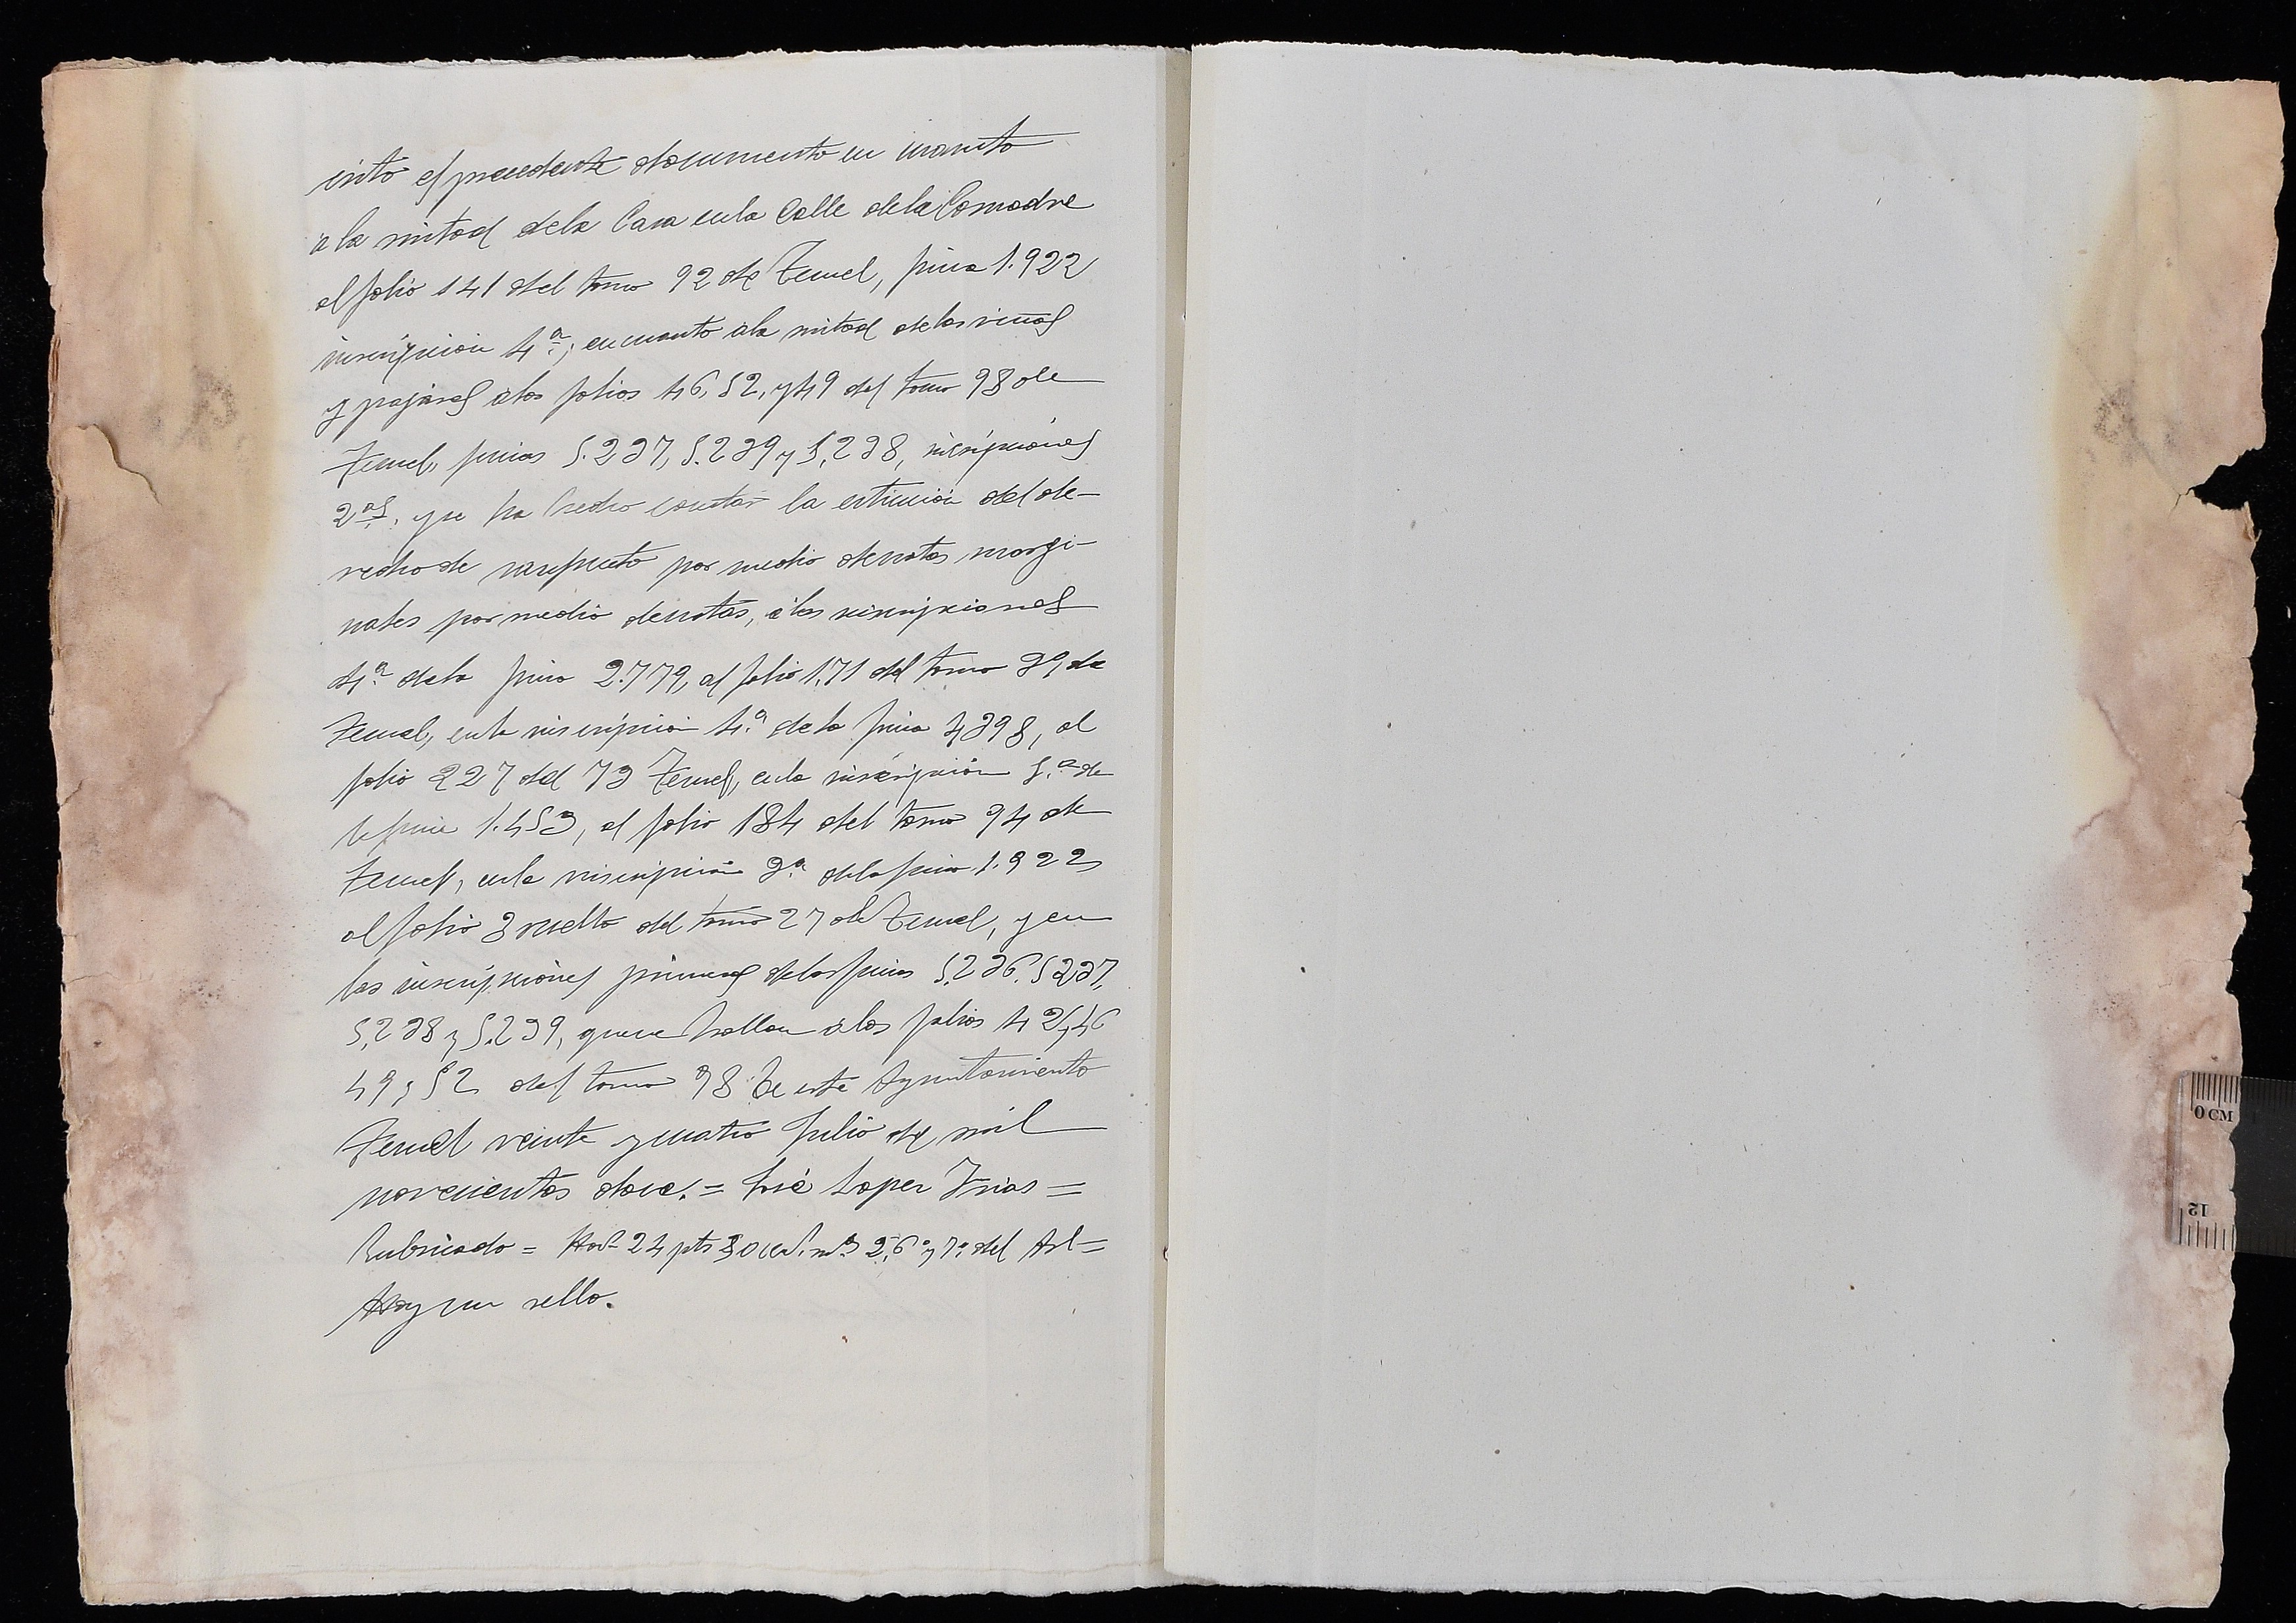 crito el precedente documento en cuanto
a la mitad de la Casa en la Calle de la Comadre
al folio 141 del tomo 92 de Teruel, finca 1.922
inscripcion 4ª; en cuanto a la mitad de las viñas
y pajares a los folios 46, 52, y 49 del tomo 98 de
Teruel, fincas 5.237, 5.239 y 5,238, inscripciones
2as, y se ha hecho constar la estinción del de-
recho de usufructo por medio de notas margi-
nales por medio de notas, a las inscripciones
4ª de la finca 2.779, al folio 171 del tomo 39 de
Teruel, en la inscripcion 4.ª de la finca 4398, al
folio 227 del 73 Teruel, en la inscripción 5.ª de
la finca 1.453, al folio 184 del tomo 94 de
Teruel, en la inscripción 3ª de la finca 1.922
al folio 3 vuelto del tomo 27 de Teruel, y en
las inscripciones primeras de las fincas 5.236, 5237,
5,238 y 5.239, que se hallan a los folios 42, 46
49 y 52 del tomo 98 de este Ayuntamiento
Teruel veinte y cuatro Julio de mil
novecientos doce. = José Lopez Frias =
Rubricado = Hon 24 pts 30 cen. nos 2, 6º y 7º del Arl =
Hay un sello.